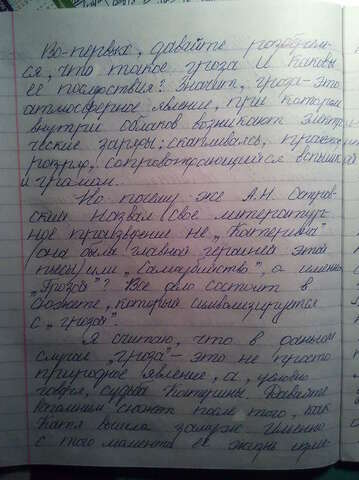 Во-первых, давайте разберем-
ся, что такое гроза и каковы
ее последствия? Значит, гроза - это
атмосферное явление, при котором
внутри облаков возникают электри-
ческие заряды; скапливаясь,
сопровождающийся вспышк
и громом.
Но почему же А.Н. Остров-
ский назвал свое литератур-
ное произведение не „Катерина"
(она была главной героиней этой
пьесы) или „Самоубийство", а именно
„Гроза"? Все дело состоит в
сюжете, который символизируется
с „грозой".
Я считаю, что в данном
случае „гроза" - это не просто
природное явление, а, условно
говоря, судьба Катерины. Давайте
вспомним сюжет после того, как
Катя вышла замуж. Именно
с того момента ее жизнь изме-